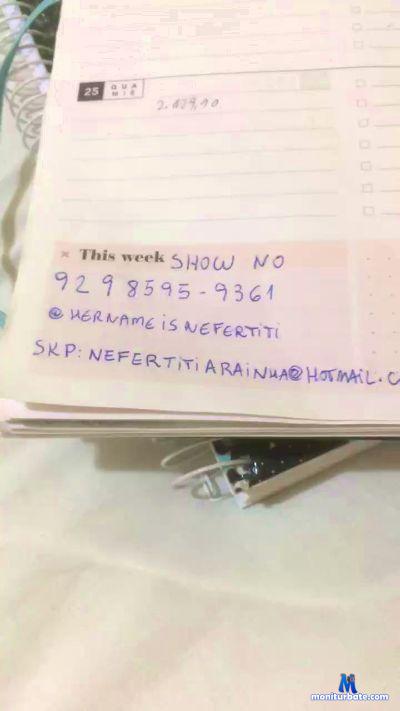 25 QUA
MIÉ
× This week SHOW NO
92 9 8595-9361
@HERNAMEISNEFERTITI
SKP: NEFERTITIARAINHA@HOTMAIL.C
moniturbate.com